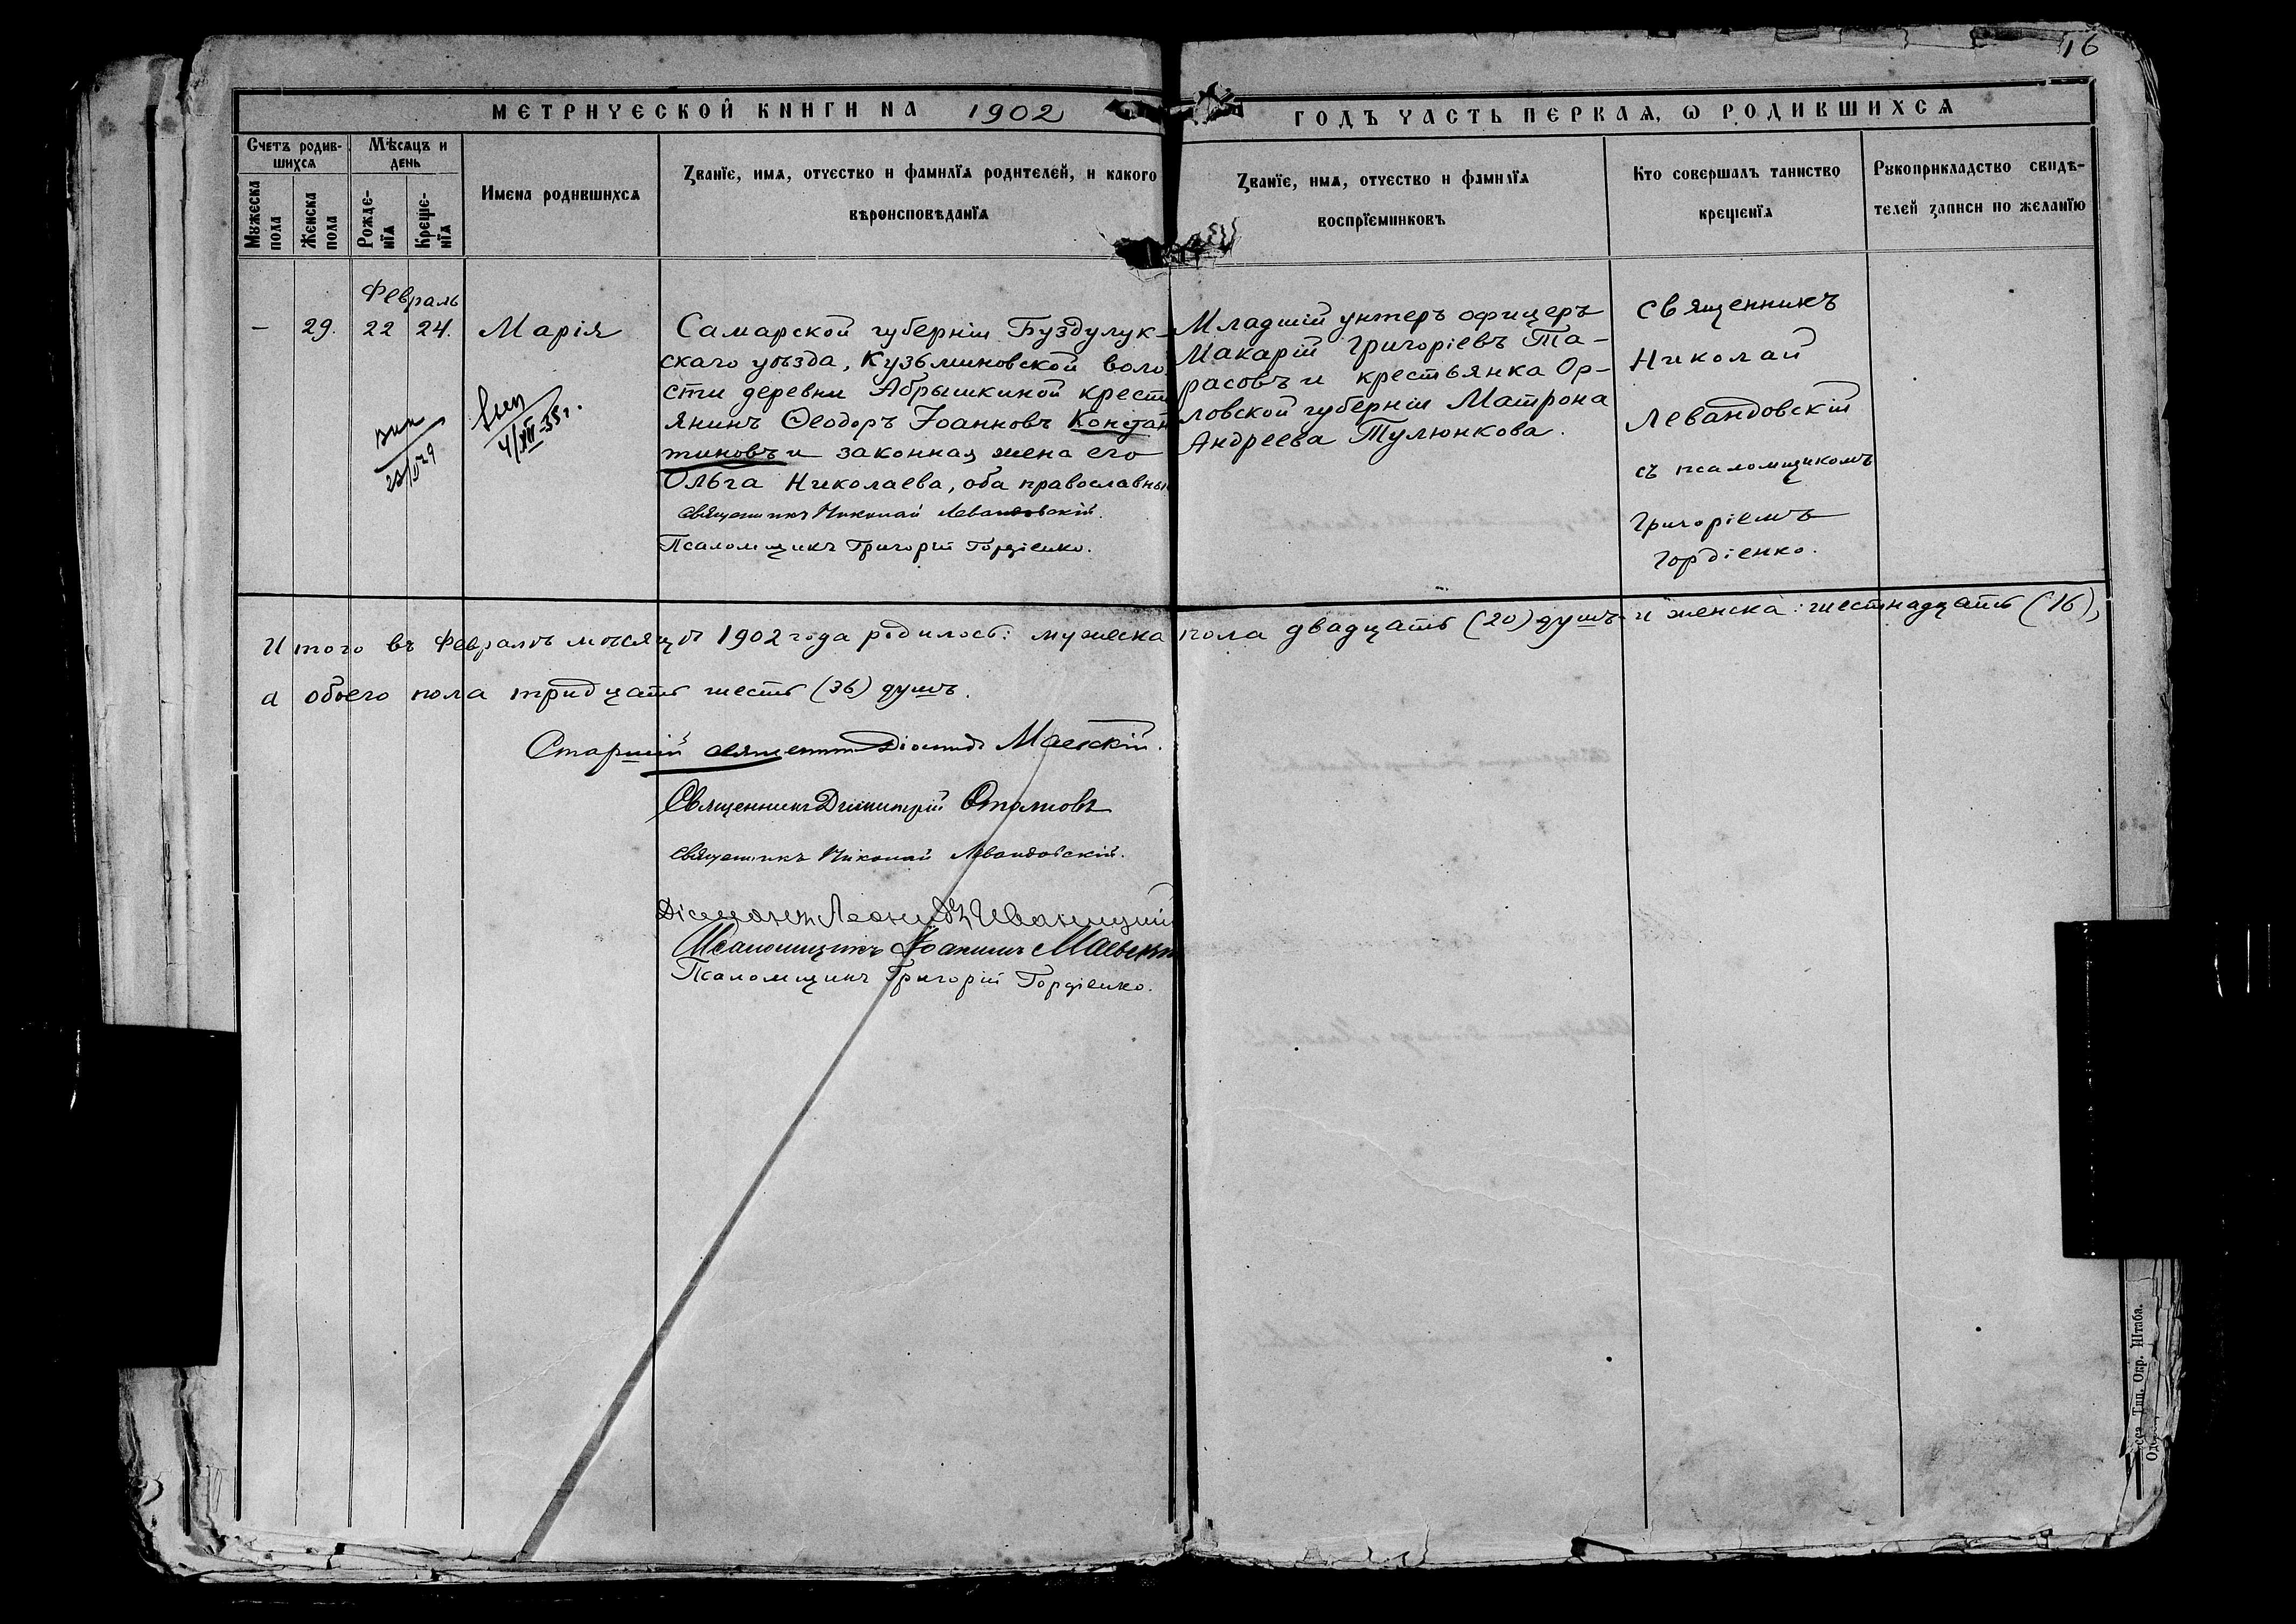 16
МЕТРИЧЕСКОЙ КНИГИ НА 1902 ГОДЪ ЧАСТЬ ПЕРВАЯ, Ѡ РОДИВШИХСѦ
Счетъ родив-
шихсѧ
Мѣсѧцъ и
день
Мꙋжеска
пола
Женска
пола
Рожде-
нїѧ
Креще-
нїѧ
Имена родившихсѧ
Званїе, имѧ, отчество и фамилїѧ родителей, и какого
вѣроисповѣданїѧ
Званїе, имѧ, отчество и фамилїѧ
воспрїемниковъ
Кто совершалъ таинство
крещенїѧ
Рꙋкоприкладство свидѣ-
телей записи по желанїю
Февраль
– 29. 22 24. Марія
Самарской губерніи Буздулук-
скаго уѣзда, Кузьминовской воло
сти деревни Абрышкиной крестья
янинъ Ѳеодоръ Іоанновъ Констан
тиновъ и законная жена его
Ольга Николаева, оба православны
Священникъ Николай Левандовскій.
Псаломщикъ Григорій Гордіенко.
4/XII-55 г.
Младшій унтеръ офицеръ
Макарій Григоріевъ Та-
расовъ и крестьянка Ор-
ловской губерніи Матрона
Андреева Тулюнкова.
Священникъ
Николай
Левандовскій
съ псаломщикомъ
Григоріемъ
Гордіенко.
Итого въ Февралѣ мѣсяцѣ 1902 года родилось: мужеска пола двадцать (20) душъ и женска: шестнадцать (16),
а обоего пола тридцать шесть (36) душъ.
Старшій священникъ Діомидъ Маевскій.
Священникъ Димитрій
Священникъ Николай Левандовскій.
Діаконъ Леонидъ Иваницкій
Псаломщикъ Іоаннъ Маевскій
Псаломщикъ Григорій Гордіенко.
Тип. Окр. Штаба.